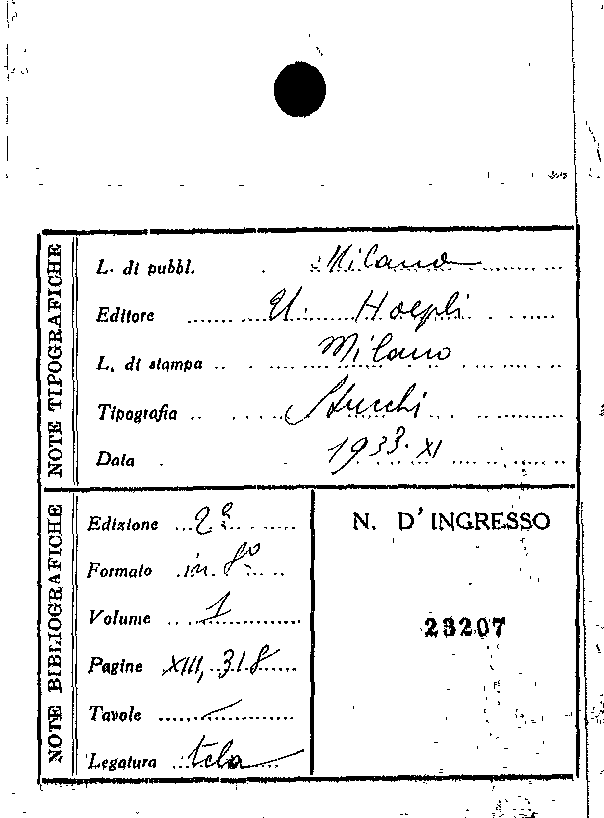 NOTE TIPOGRAFICHE
L. di pubbl. Milano
Editore U. Hoepli
L. di stampa Milano
Tipografia Stucchi
Data 1933. XI
NOTE BIBLIOGRAFICHE
Edizione 2ª
Formato in 8º
Volume 1
Pagine XIII, 318
Tavole —
Legatura tela
N. D'INGRESSO
23207